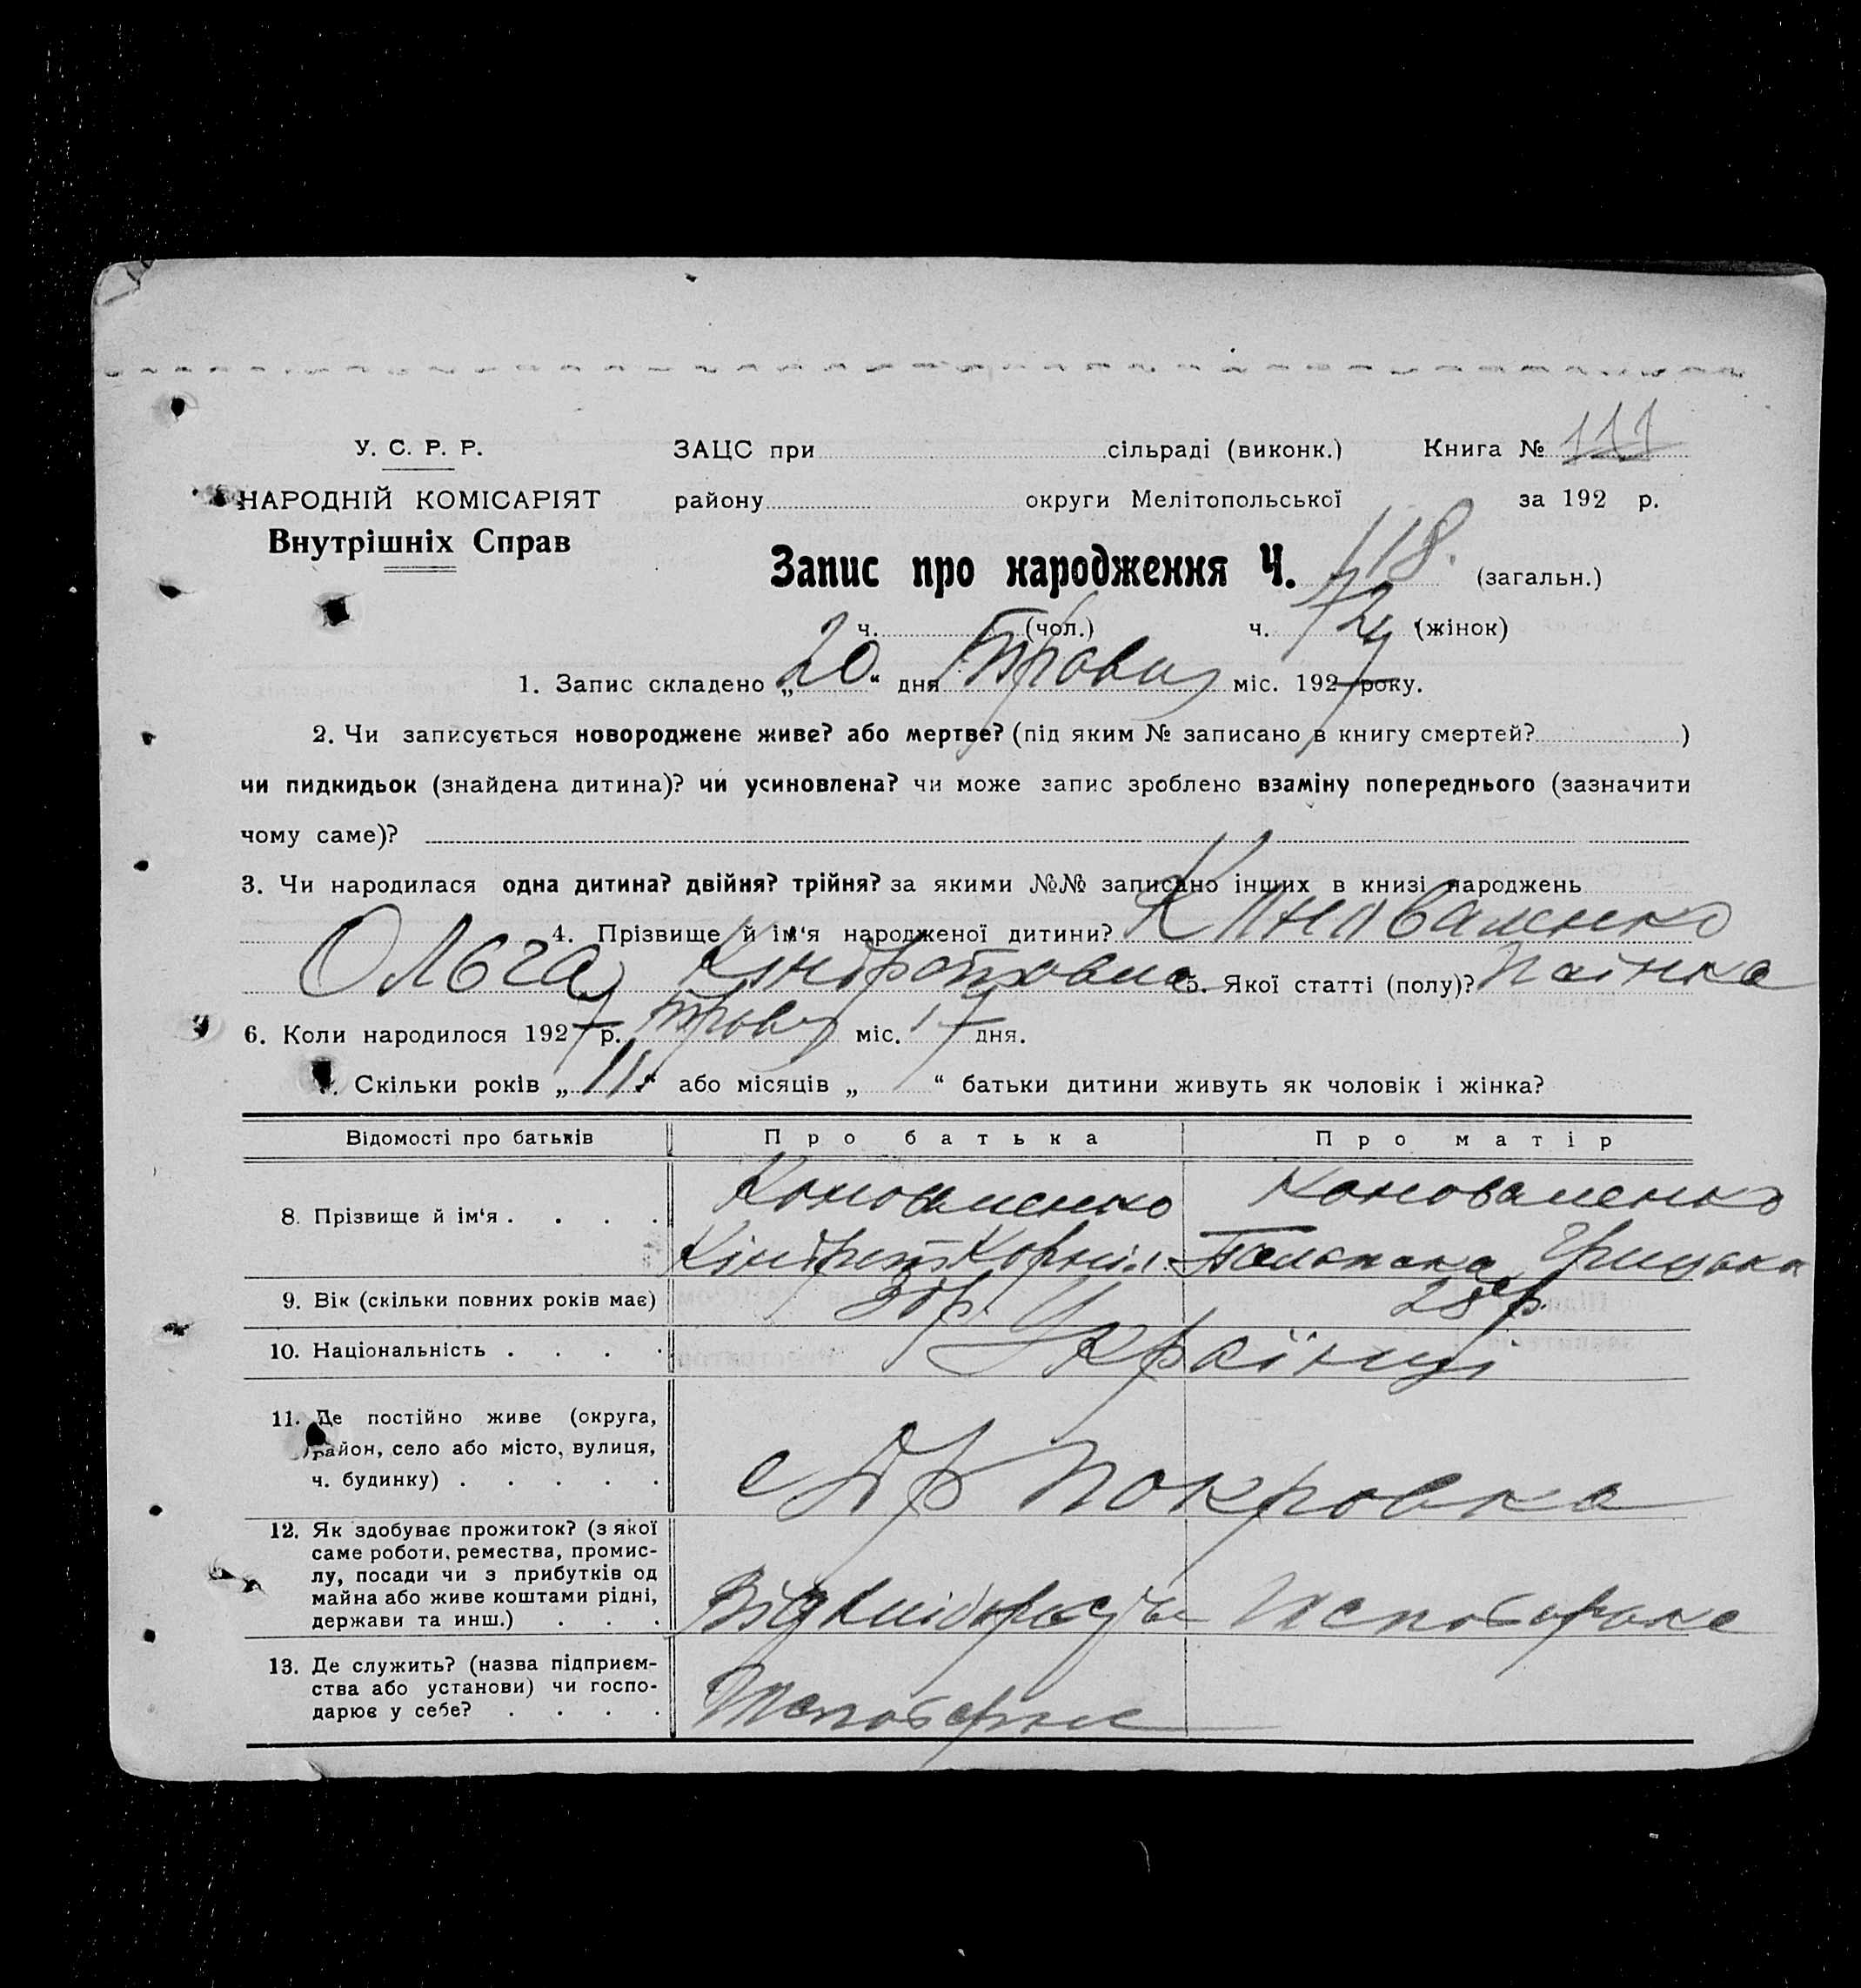 У. С. Р. Р.
НАРОДНІЙ КОМІСАРІЯТ
Внутрішніх Справ
ЗАЦС при сільраді (виконк.) Книга № 111
району округи Мелітопольської за 192 р.
Запис про народження Ч. 118. (загальн.)
ч. (чол.) ч. (жінок)
1. Запис складено „20“ дня Травня міс. 1927 року.
2. Чи записується новороджене живе? або мертве? (під яким № записано в книгу смертей? )
чи пидкидьок (знайдена дитина)? чи усиновлена? чи може запис зроблено взаміну попереднього (зазначити
чому саме)?
3. Чи народилася одна дитина? двійня? трійня? за якими №№ записано інших в книзі народжень
4. Прізвище й ім‘я народженої дитини? Коноваленко
Ольга Кіндратовна 5. Якої статті (полу)? жінка
6. Коли народилося 1927 р. травня міс. 17 дня.
7. Скільки років „11“ або місяців „ “ батьки дитини живуть як чоловік і жінка?
Відомості про батьків Про батька Про матір
8. Прізвище й ім‘я . . . . Коноваленко Коноваленко
Кіндрат Корнії. Грицька
9. Вік (скільки повних років має) 28 р.
10. Національність . . . . Українці
11. Де постійно живе (округа,
район, село або місто, вулиця,
ч. будинку) . . . . .
с Покровка
12. Як здобуває прожиток? (з якої
саме роботи, ремества, промис-
лу, посади чи з прибутків од
майна або живе коштами рідні,
держави та инш.) . . .
13. Де служить? (назва підприєм-
ства або установи) чи госпо-
дарює у себе? . . . .